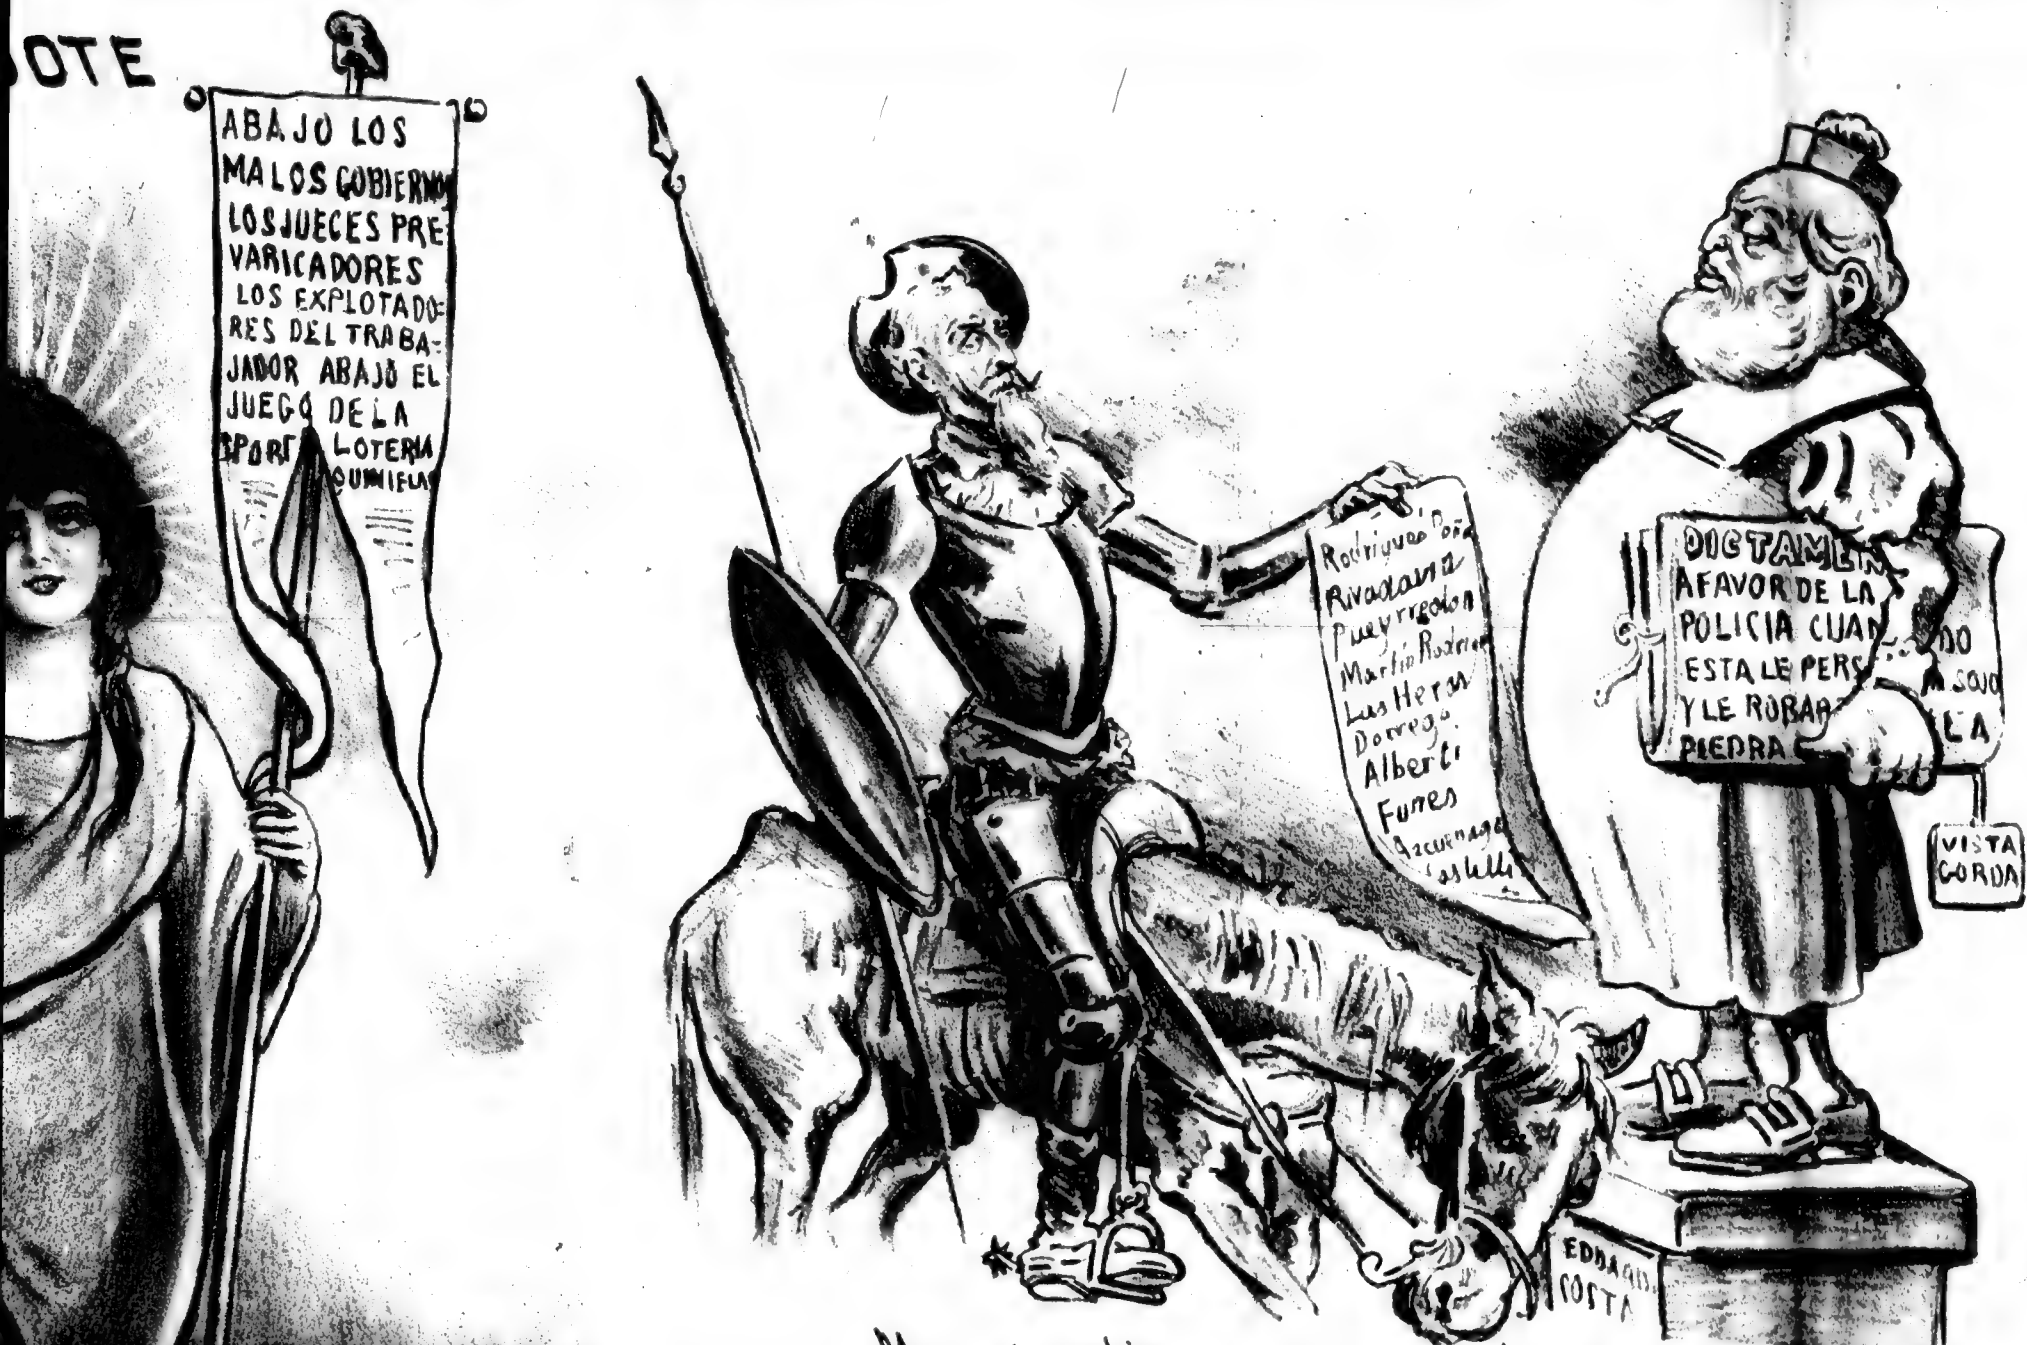 OTE
ABAJO LOS
MALOS GOBIERNOS
LOS JUECES PRE=
VARICADORES
LOS EXPLOTADO=
RES DEL TRABA=
JADOR ABAJO EL
JUEGO DE LA
SPORT LOTERIA
QUINIELAS
Rodrigues Peña
Rivadavia
Pueyrredon
Martin Rodrigue
Las Heras
Dorrego
Alberti
Funes
Azcuenaga
Castelli
DICTAMEN
A FAVOR DE LA
POLICIA CUANDO
ESTA LE PERS A SOJO
Y LE ROBA LA
PIEDRA
VISTA
GORDA
EDUARDO
COSTA